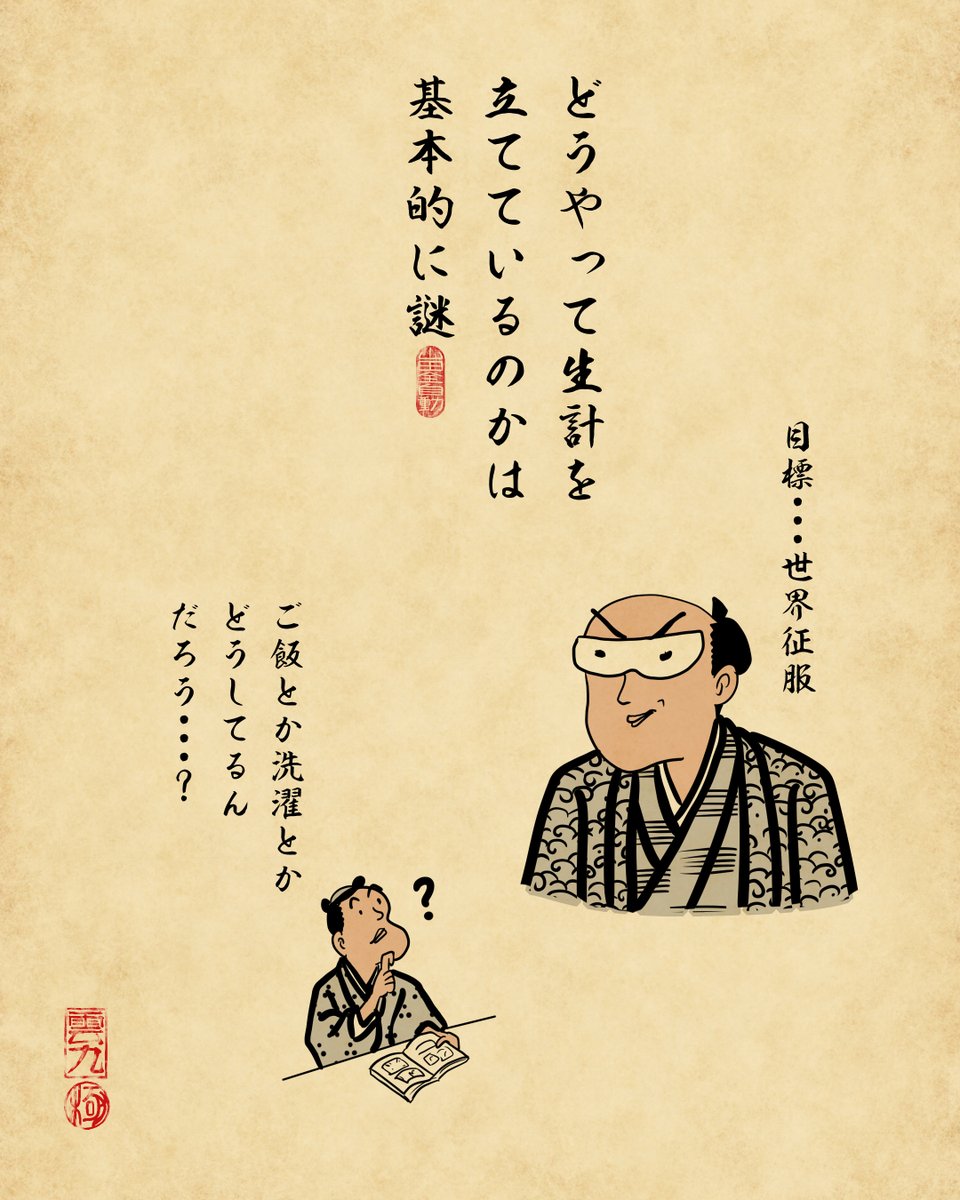 どうやって生計を
立てているのかは
基本的に謎
目標・・・世界征服
ご飯とか洗濯とか
どうしてるん
だろう・・・？
?